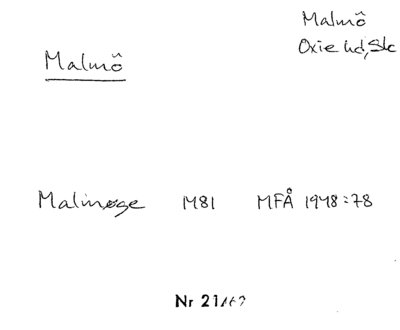 Malmö
Oxie hd, Sk
Malmö
Malmøge 1481 MFÅ 1948:78
Nr 21/62